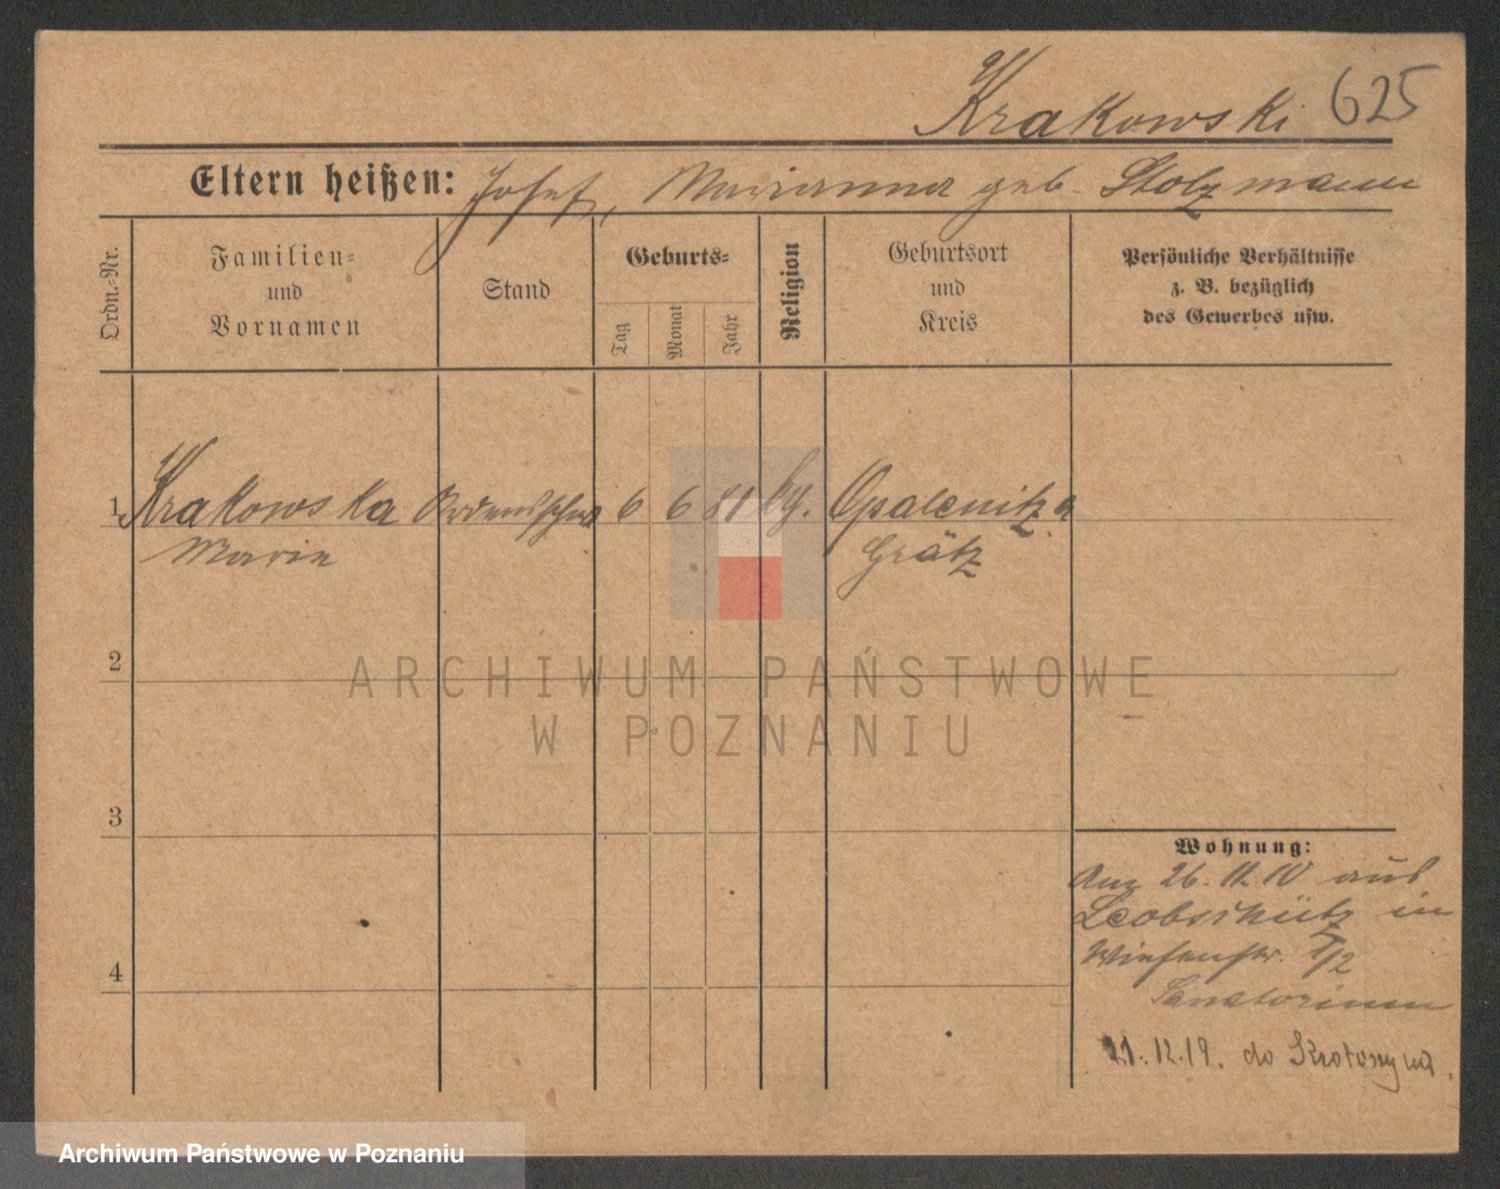 Krakowski 625
Eltern heißen: Josef, Marianna geb. Stolzmann
Ordn.-Nr.
Familien-
und
Vornamen
Stand
Geburts-
Tag
Monat
Jahr
Religion
Geburtsort
und
Kreis
Persönliche Verhältnisse
z. B. bezüglich
des Gewerbes usw.
1 Krakowska Ordensschw 6 6 81 kg. Opalenitza
Marie Grätz
2
ARCHIWUM PAŃSTWOWE
W POZNANIU
3
Wohnung:
Anz 26. 11. 10 aus
Leobschütz in
Wiesenstr. 1/2
Sanatorium
4
21.12.19. do Krotoszyna.
Archiwum Państwowe w Poznaniu